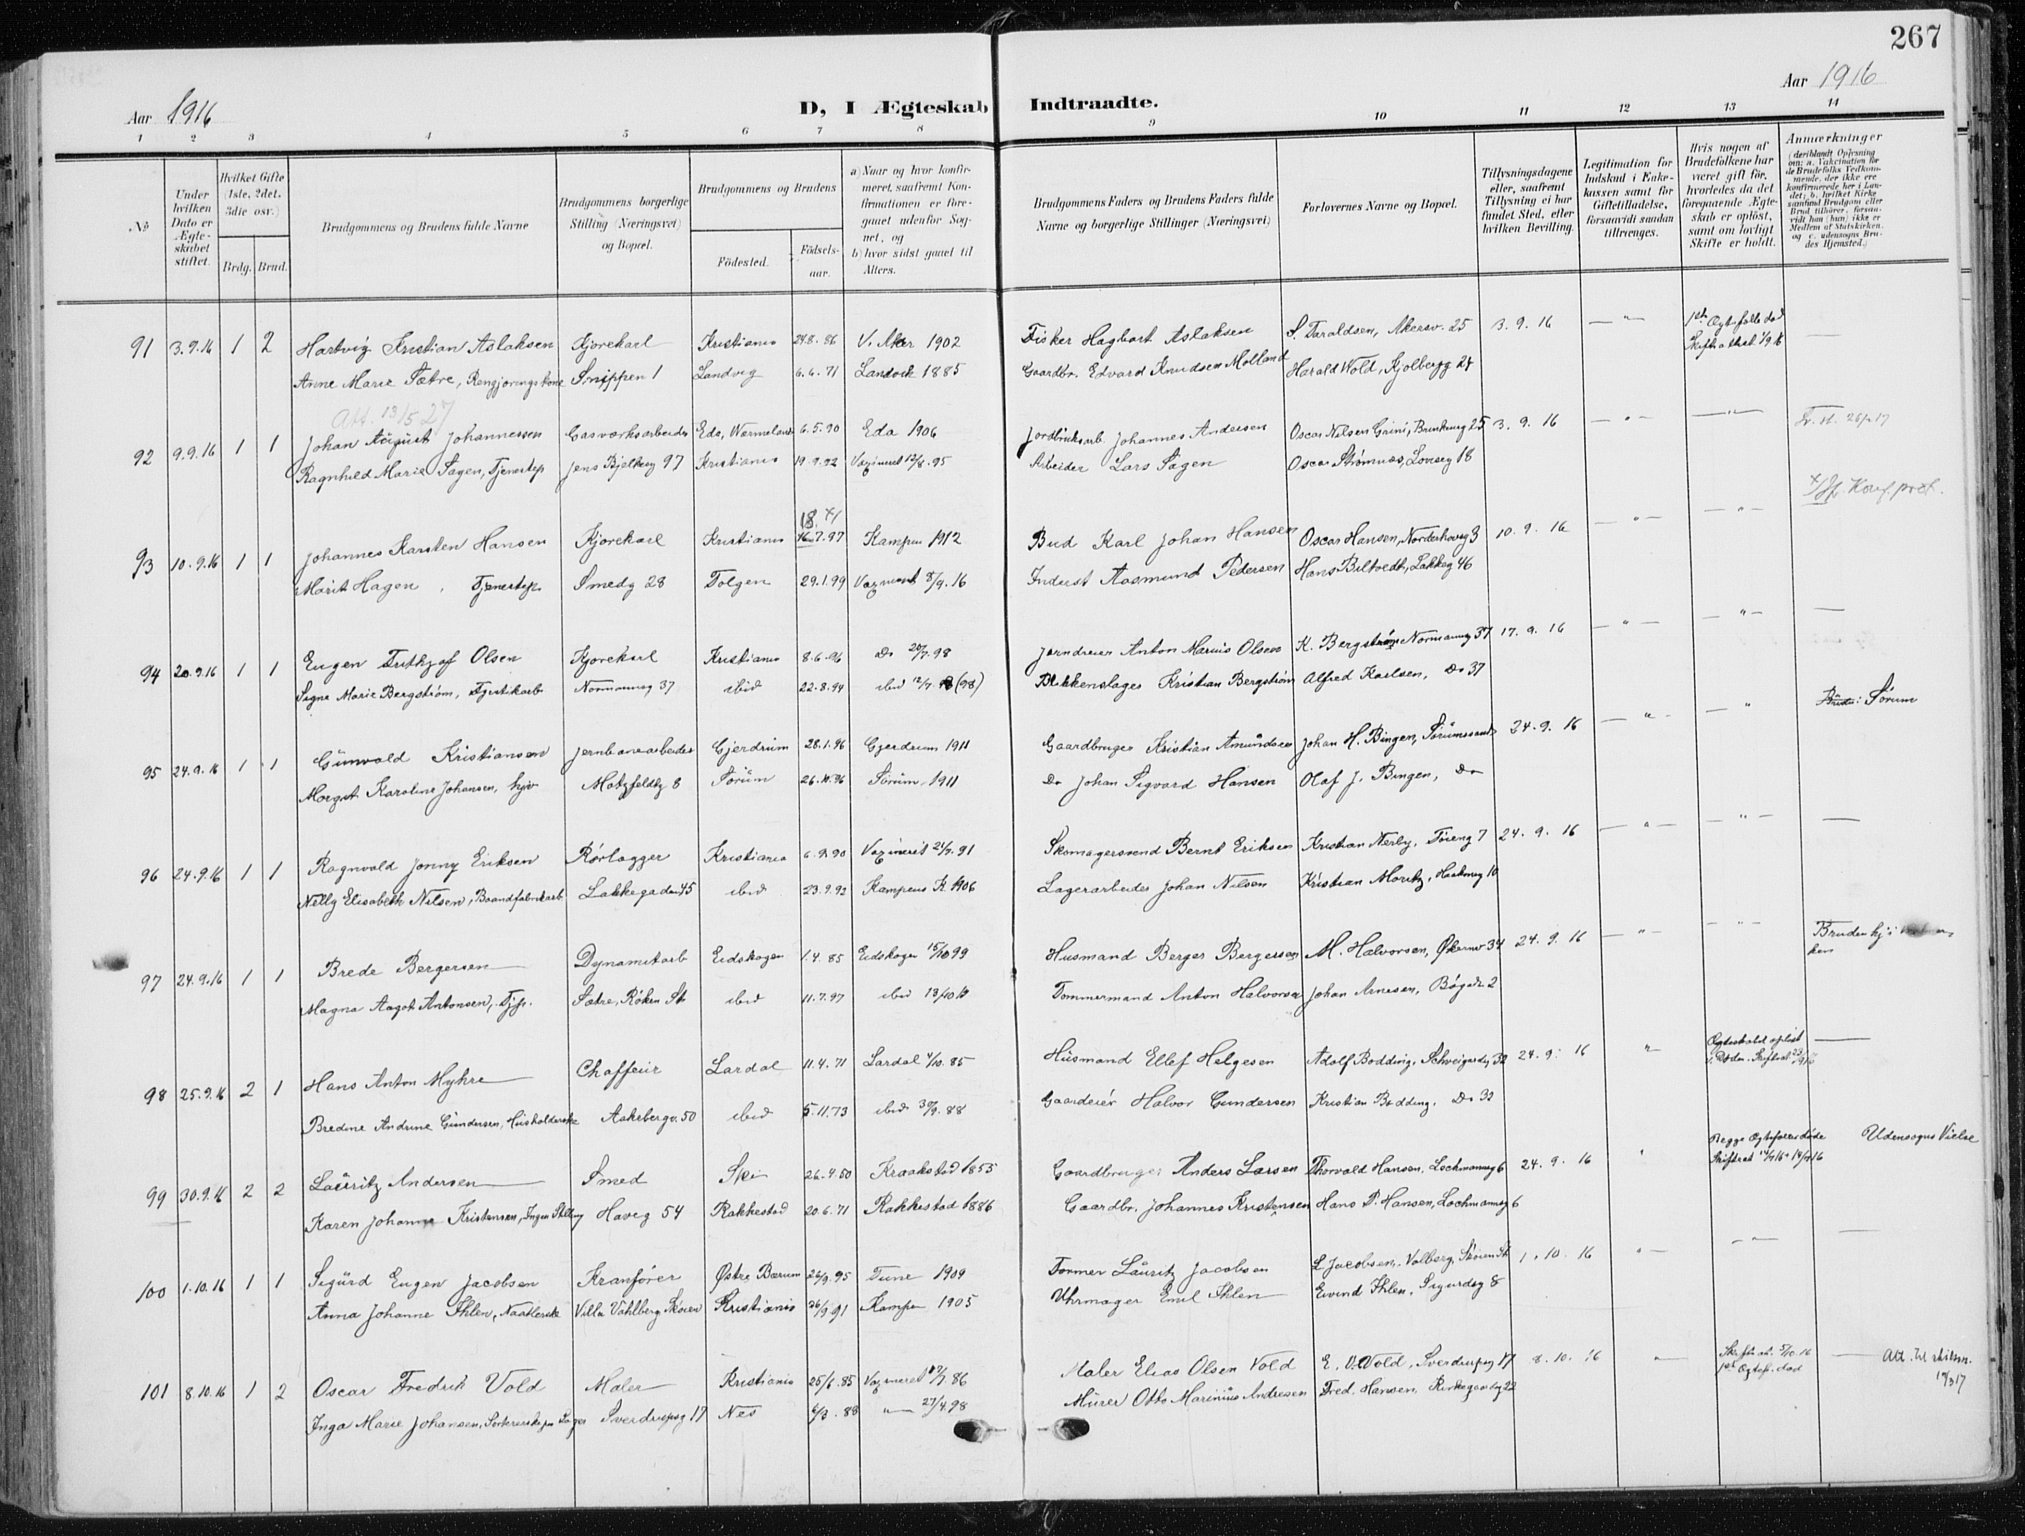 267
Aar 1916
D, I Ægteskab Indtraadte.
Aar 1916
1 2 3 4 5 6 7 8 9 10 11 12 13 14
№
Under hvilken Dato er Ægteskabet stiftet.
Hvilket Gifte (1ste, 2det, 3die osv.)
Brdg. Brud.
Brudgommens og Brudens fulde Navne
Brudgommens borgerlige Stilling (Næringsvei) og Bopæl.
Brudgommens og Brudens
Födested.
Födselsaar.
a) Naar og hvor konfirmeret, saafremt Konfirmationen er foregaaet udenfor Sognet, og
b) hvor sidst gaaet til Alters.
Brudgommens Faders og Brudens Faders fulde Navne og borgerlige Stillinger (Næringsvei)
Forlovernes Navne og Bopæl.
Tillysningsdagene eller, saafremt Tillysning ei har fundet Sted, efter hvilken Bevilling.
Legitimation for Indskud i Enkekassen samt for Giftetilladelse, forsaavidt saadan tiltrænges.
Hvis nogen af Brudefolkene har været gift før, hvorledes da det foregaaende Ægteskab er oplöst, samt om lovligt Skifte er holdt.
Anmærkninger (deriblandt Oplysning om: a. Vakcination for de Brudefolks Vedkommende, der ikke ere konfirmerede her i Landet; b. hvilket Kirkesamfund Brudgom eller Brud tilhörer, forsaavidt han (hun) ikke er Medlem af Statskirken, og c. udensogns Brudes Hjemsted.)
91 3.9.16 1 2 Hartvig Kristian Aslaksen Kjørekarl Kristiania 24.8.86 V. Aker 1902 Fisker Hagbart Aslaksen S. Taraldsen, Akersv. 25 3.9.16 — " —
Anne Marie Sætre, Rengjøringskone Snippen 1 Landvig 6.6.71 Landvik 1885 Gaardbr. Edvard Knudsen Molland Harald Wold, Kjølbergg 27
Att. 13/5 27
92 9.9.16 1 1 Johan August Johannessen Gasværksarbeider Eda, Wermeland 6.5.90 Eda 1906 Jordbruksarb. Johannes Andersen Oscar Nilsen Grini, 25 3.9.16 — " — — " —
Ragnhild Marie Sagen, Tjenestep Jens Bjelkesg 97 Kristiania 19.9.92 Vaxineret 12/8.95 Arbeider Lars Sagen Oscar Strømnæs, 18
18. x)
93 10.9.16 1 1 Johannes Karsten Hansen Kjørekarl Kristiania 16.7.97 Kampen 1912 Bud Karl Johan Hansen Oscar Hansen, Norderhovsg 3 10.9.16 — " — — " — Konf. prot.
Marit Hagen, Tjenestep. Smedg 28 Tolgen 29.1.99 Vaxineret 8/9.16 Inderst Aasmund Pedersen Hans Biltvedt, Lakkeg 46
94 20.9.16 1 1 Eugen Frithjof Olsen Kjørekarl Kristiania 8.6.96 Do 20/7.98 Jerndreier Anton Marius Olsen K. Bergstrøm Normannsg 37 17.9.16 — " — — " —
Signe Marie Bergstrøm, Fyrstikarb Normannsg 37 ibid 22.8.94 ibid Blikkenslager Kristian Bergstrøm Alfred Karlsen, Do 37
95 24.9.16 1 1 Gunvald Kristiansen Jernbanearbeider Gjerdrum 28.1.96 Gjerdrum 1911 Gaardbruger Kristian Amundsen Johan H. Bingen, Sørumsand 24.9.16 — " — — " Sørum
Margit Karoline Johansen, hjv Motzfeldtg 8 Sørum 26.10.96 Sørum 1911 Do Johan Sigvard Hansen Olaf J. Bingen, Do
96 24.9.16 1 1 Ragnvald Jonny Eriksen Rørlægger Kristiania 6.9.90 Vaxineret 21/7.91 Skomagersvend Bernt Eriksen Kristian Nerby, Tøieng 7 24.9.16 — " — — " —
Nelly Elisabeth Nilsen, Baandfabrikarb Lakkegaden 45 ibid 23.9.92 Kampens K. 1906 Lagerarbeider Johan Nilsen Kristian Moritz, 10
97 24.9.16 1 1 Brede Bergersen Dynamitarb Eidskogen 1.4.85 Eidskogen 15/10 99 Husmand Berger Bergersen M. Halvorsen, Økernv 34 24.9.16 — " — — " —
Magna Aagot Antonsen, Tjp. Sætre, Røken St ibid 11.7.97 ibid Tømmermand Anton Halvorsen Johan Arnesen, Bøgata 2
98 25.9.16 2 1 Hans Anton Myhre Chaffeur Lardal 11.4.71 Lardal 4/10.85 Husmand Ellef Helgesen Adolf Bodding, Schweigaardsg 32 24.9.16 " Ægteskabet opløst
Bredine Andrine Gundersen, Husholderske Aakebergv. 50 ibid 5.11.73 ibid 30/9.88 Gaardeier Halvor Gundersen Kristian Bodding, Do 32
99 30.9.16 2 2 Lauritz Andersen Smed Ski 26.4.50 Kraakstad 1855 Gaardbruger Anders Larsen Thorvald Hansen, Lochmannsg 6 24.9.16 " Begge Ægtefæller døde Udensogns Vielse
Karen Johanne Kristensen, Ingen Stilling Haveg 54 Rakkestad 20.6.71 Rakkestad 1886 Gaardbr. Johannes Kristensen Hans P. Hansen, Lochmannsg 6
100 1.10.16 1 1 Sigurd Eugen Jacobsen Kranfører Østre Bærum 26/9.95 Tune 1909 Former Lauritz Jacobsen L Jacobsen, Volberg, Skøien St 1.10.16 " — — " —
Anna Johanne Ihlen, Naadlerske Villa Vahlberg, Skøien Kristiania 26/9 91 Kampen 1905 Uhrmager Emil Ihlen Eivind Ihlen, Sigurdsg 8
101 8.10.16 1 2 Oscar Fredrik Vold Maler Kristiania 25/6.85 Vaxineret 86 Maler Elias Olsen Vold E. O. Vold, Sverdrupsg 17 8.10.16 " 1st Ægtef. død
Inga Marie Johansen, Sorterske Sverdrupsg 17 Nes 6/3.88 " 27/4.98 Murer Otto Marinius Andresen Fred. Hansen, Kirkegaardsg 22